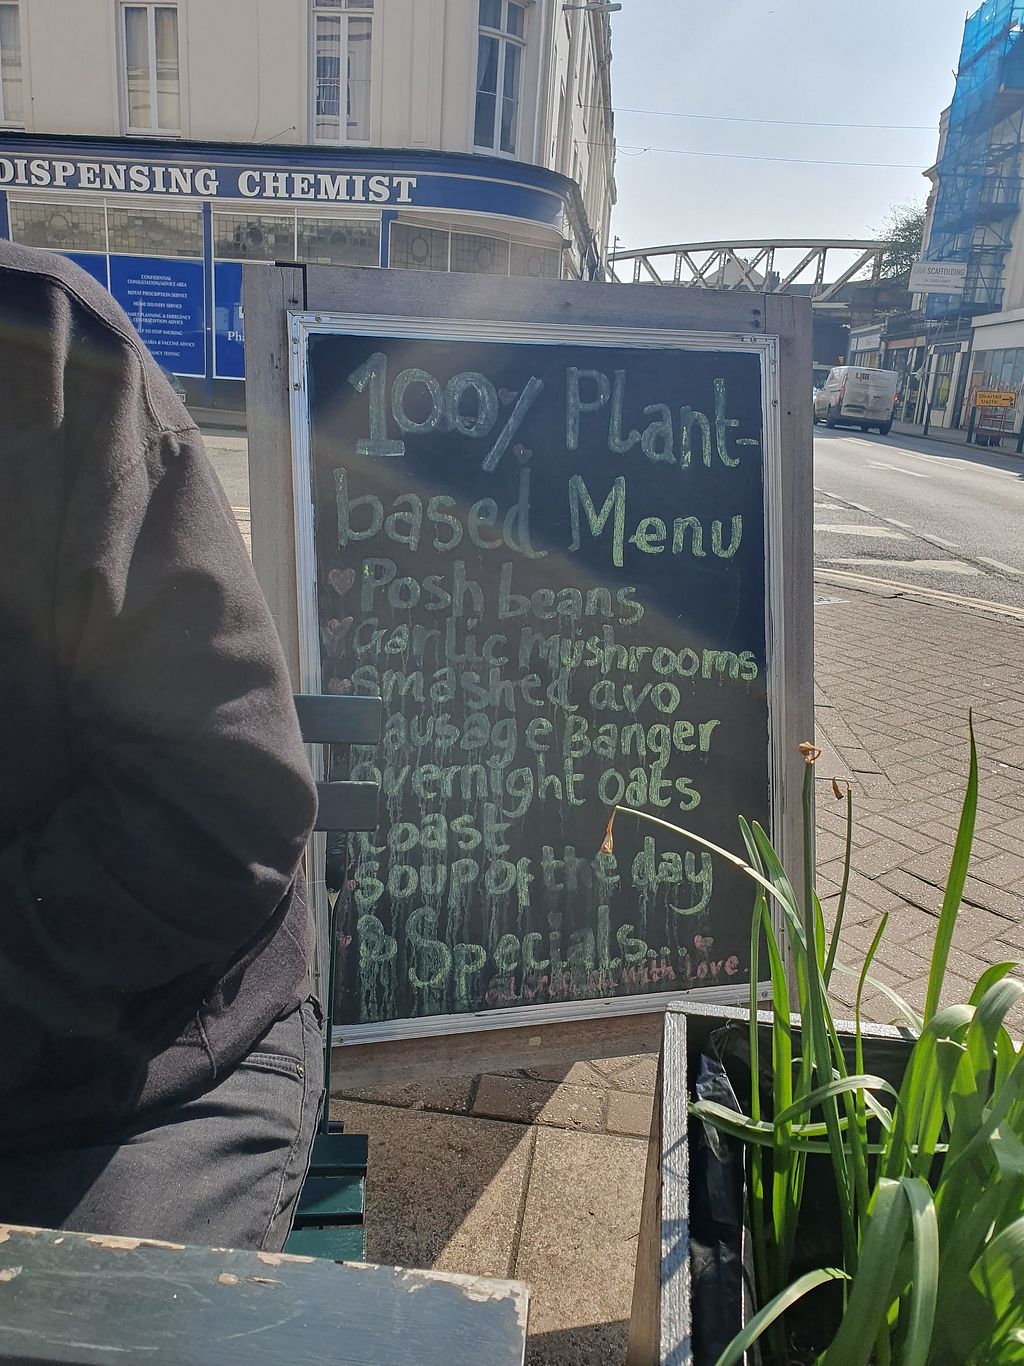 DISPENSING CHEMIST
CONFIDENTIAL
CONSULTATION/ADVICE AREA
REPEAT PRESCRIPTION SERVICE
HOME DELIVERY SERVICE
FAMILY PLANNING & EMERGENCY
CONTRACEPTION ADVICE
HELP TO STOP SMOKING
& VACCINE ADVICE
TESTING
Pha
SCAFFOLDING
Diverted
traffic
100% Plant-
based Menu
Posh beans
Garlic mushrooms
Smashed avo
Sausage Banger
Overnight oats
toast
Soup of the day
& Specials...
with love.